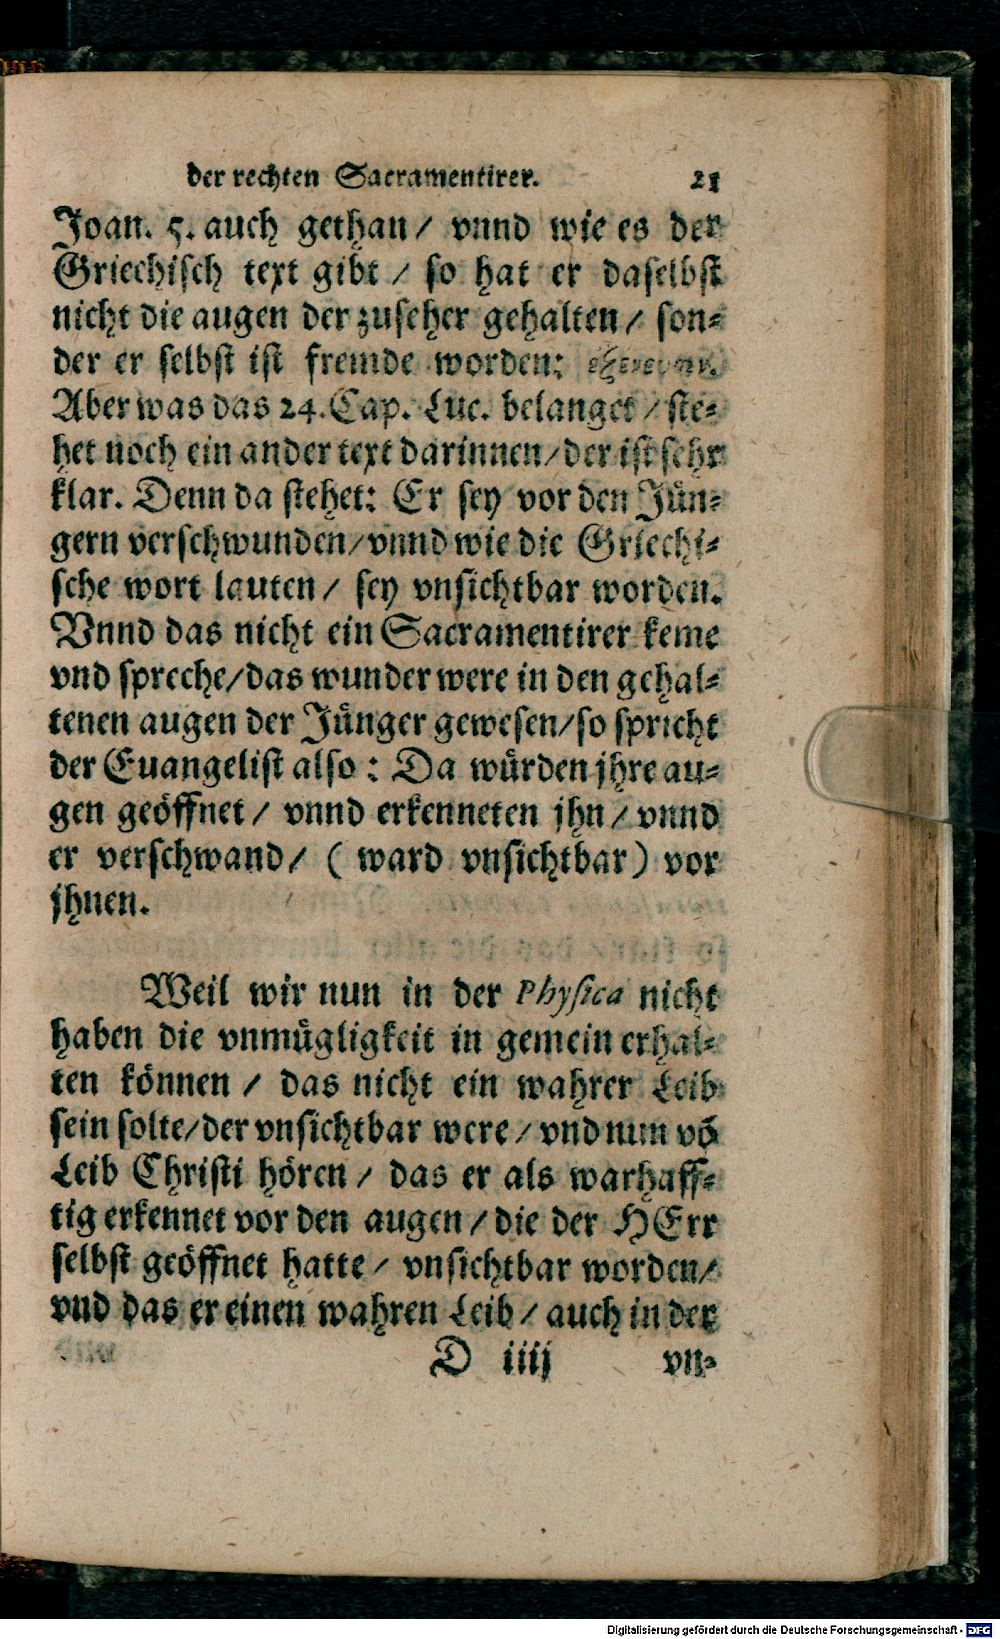 der rechten Sacramentirer. 21
Joan. 5. auch gethan / vnnd wie es der
Griechisch text gibt / so hat er daselbst
nicht die augen der zuseher gehalten / son-
der er selbst ist fremde worden:
Aber was das 24. Cap. Luc. belanget / ste-
het noch ein ander text darinnen / der ist sehr
klar. Denn da stehet: Er sey vor den Jün-
gern verschwunden / vnnd wie die Griechi-
sche wort lauten / sey vnsichtbar worden.
Vnnd das nicht ein Sacramentirer keme
vnd spreche / das wunder were in den gehal-
tenen augen der Jünger gewesen / so spricht
der Euangelist also: Da würden jhre au-
gen geöffnet / vnnd erkenneten jhn / vnnd
er verschwand / ( ward vnsichtbar) vor
jhnen.
Weil wir nun in der Physica nicht
haben die vnmügligkeit in gemein erhal-
ten können / das nicht ein wahrer Leib
sein solte / der vnsichtbar were / vnd nun võ
Leib Christi hören / das er als warhaff-
tig erkennet vor den augen / die der HErr
selbst geöffnet hatte / vnsichtbar worden /
vnd das er einen wahren Leib / auch in der
D iiij vn-
Digitalisierung gefördert durch die Deutsche Forschungsgemeinschaft - DFG